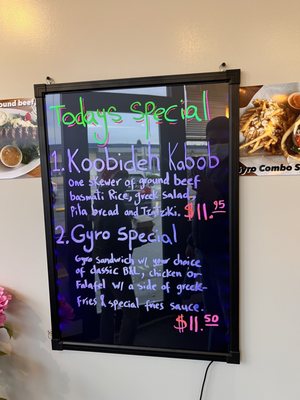 Todays Special
1. Koobideh Kabob
One skewer of ground beef
basmati Rice, greek salad,
Pita bread and Tzatziki. $11.95
2. Gyro Special
Gyro Sandwich w/ your choice
of classic B&L, chicken or
Falafel w/ a side of greek
fries & special fries sauce.
$11.50
round beef
Gyro Combo S